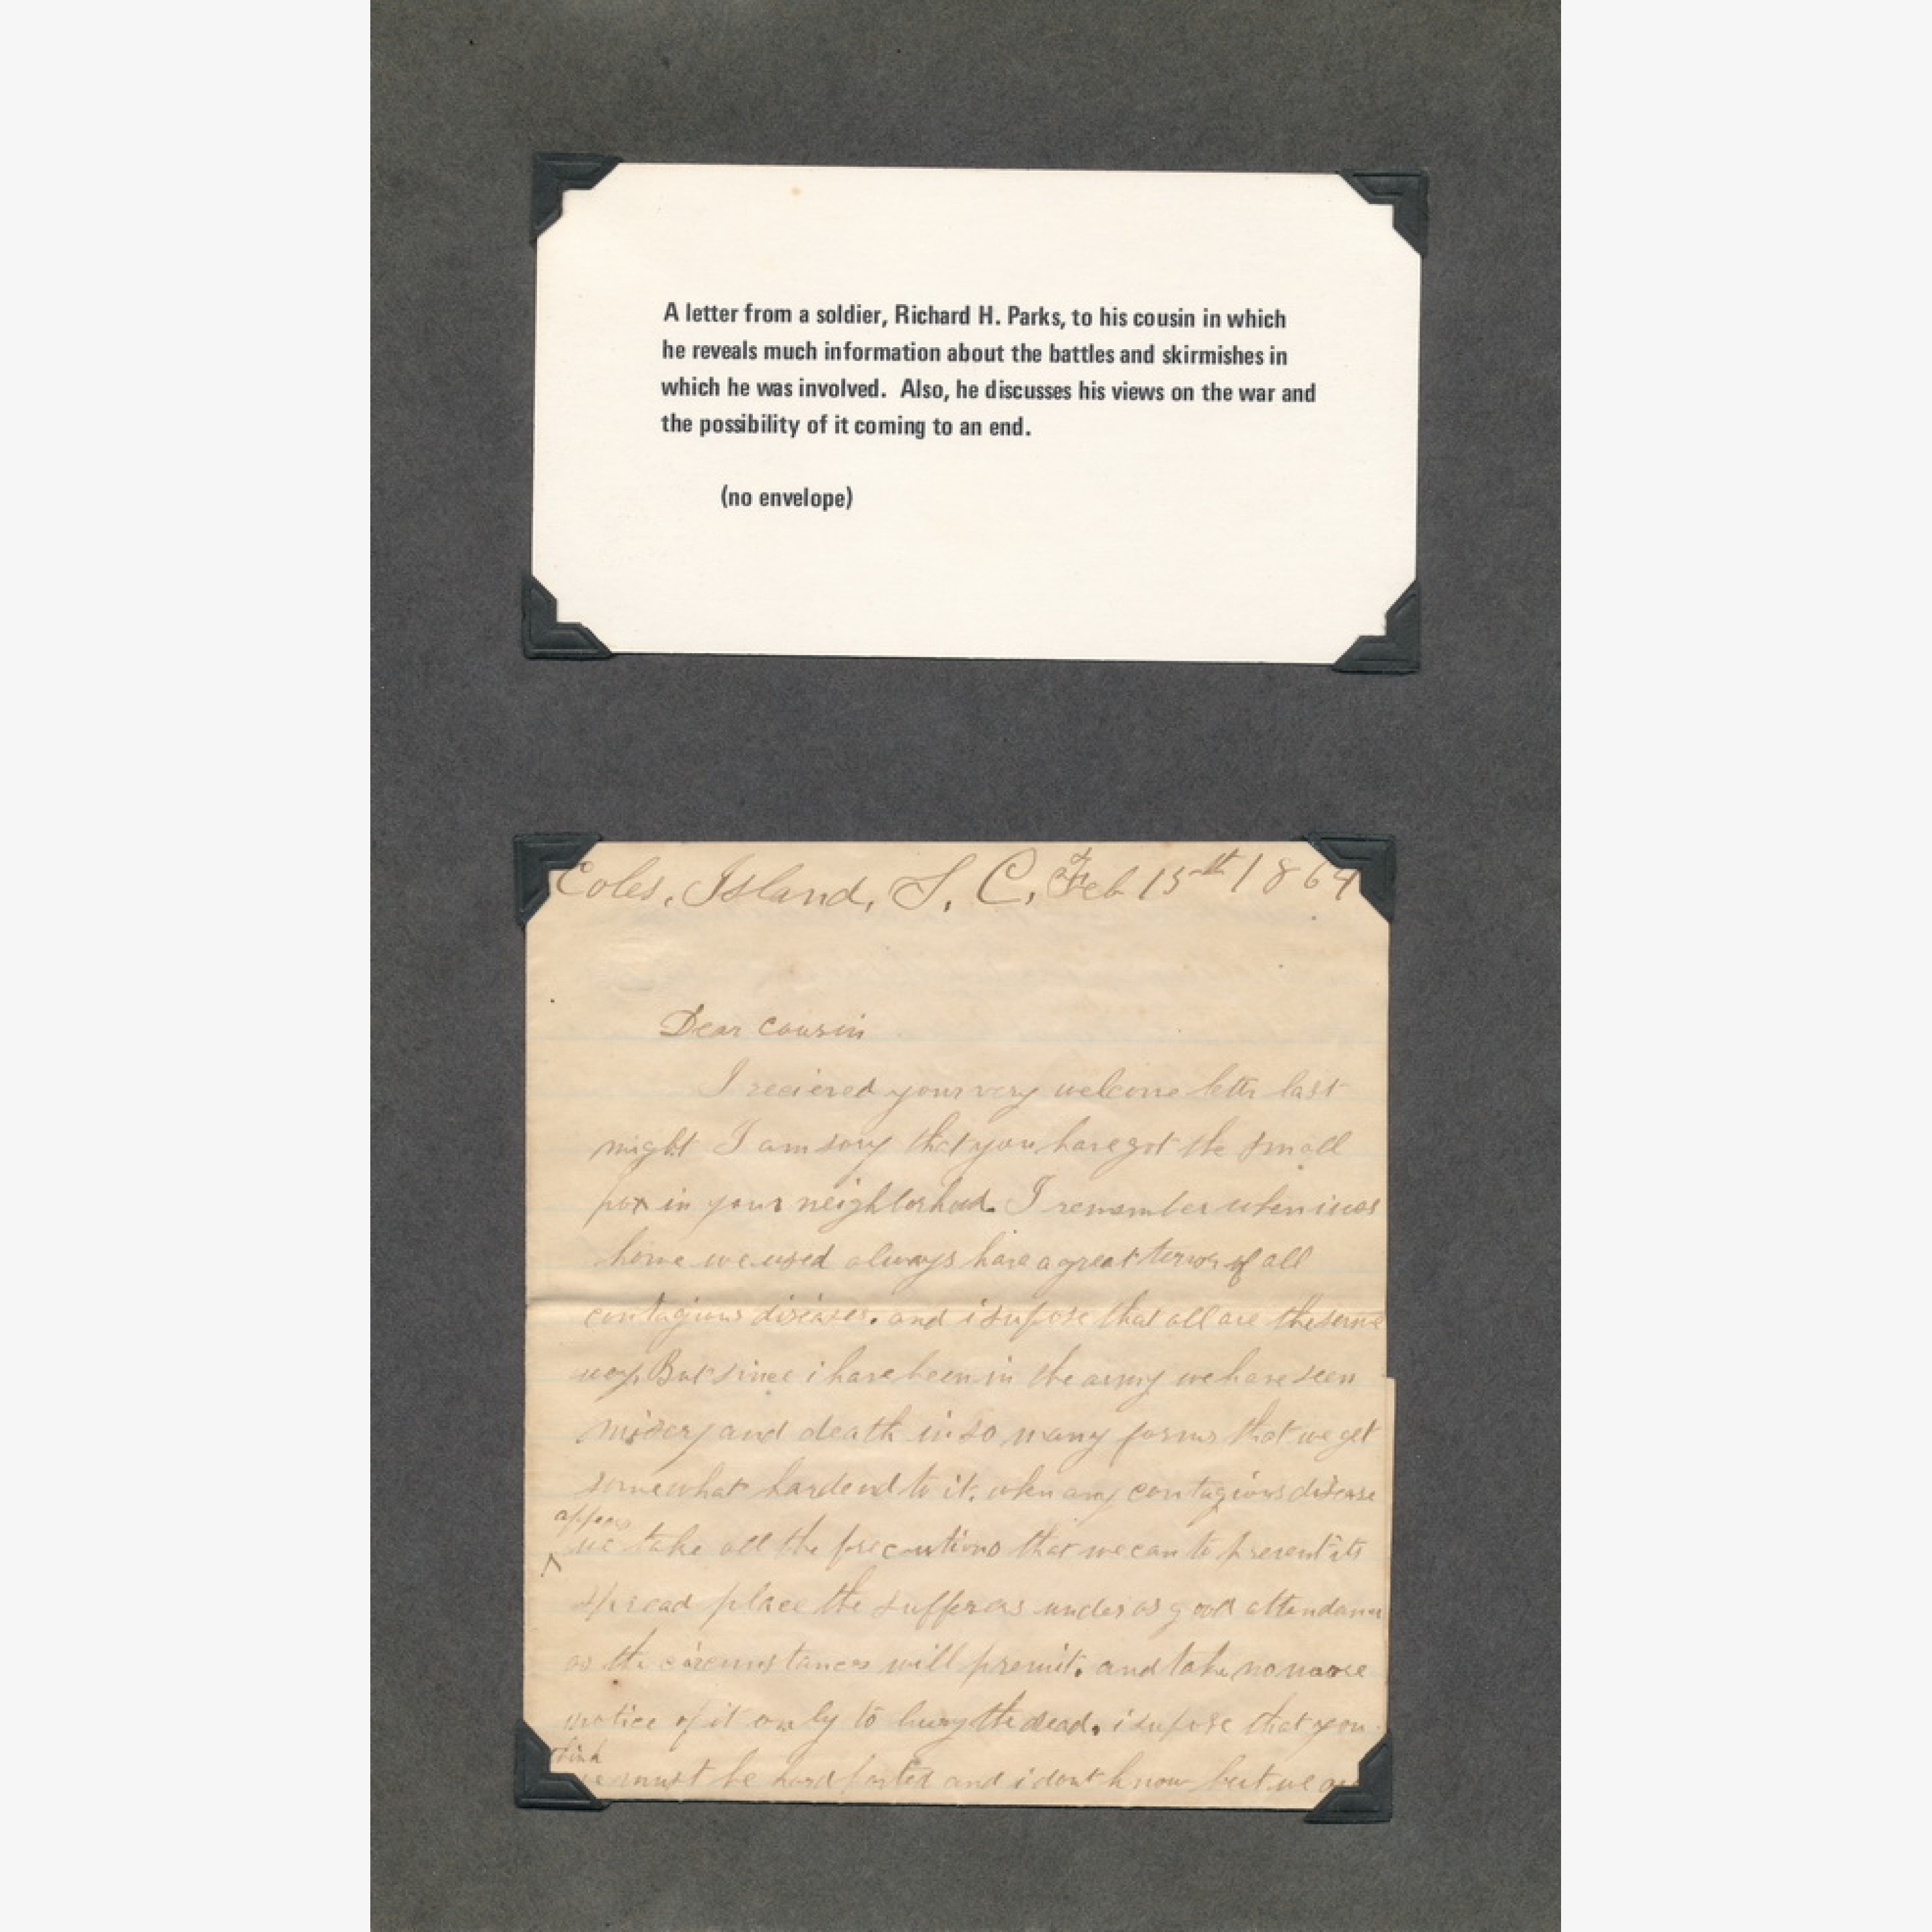 A letter from a soldier, Richard H. Parks, to his cousin in which
he reveals much information about the battles and skirmishes in
which he was involved. Also, he discusses his views on the war and
the possibility of it coming to an end.
(no envelope)
Coles, Island, S, C, Feb 15th 1864
Dear cousin
I recieved your very welcome letter last
night I am sory that you have got the small
pox in your neighborhood. I remember when i was
home we used always have a great terror of all
contagious diseases. and i supose that all are the same
way, But since i have been in the army we have seen
misery and death in so many forms that we get
somewhat hardend to it. when any contagious disease
appears
we take all the precautions that we can to prevent its
spread place the sufferers under as good attendance
as the circumstances will premit. and take no more
notice of it only to bury the dead. i supose that you
think
we must be hard and i dont know but we are